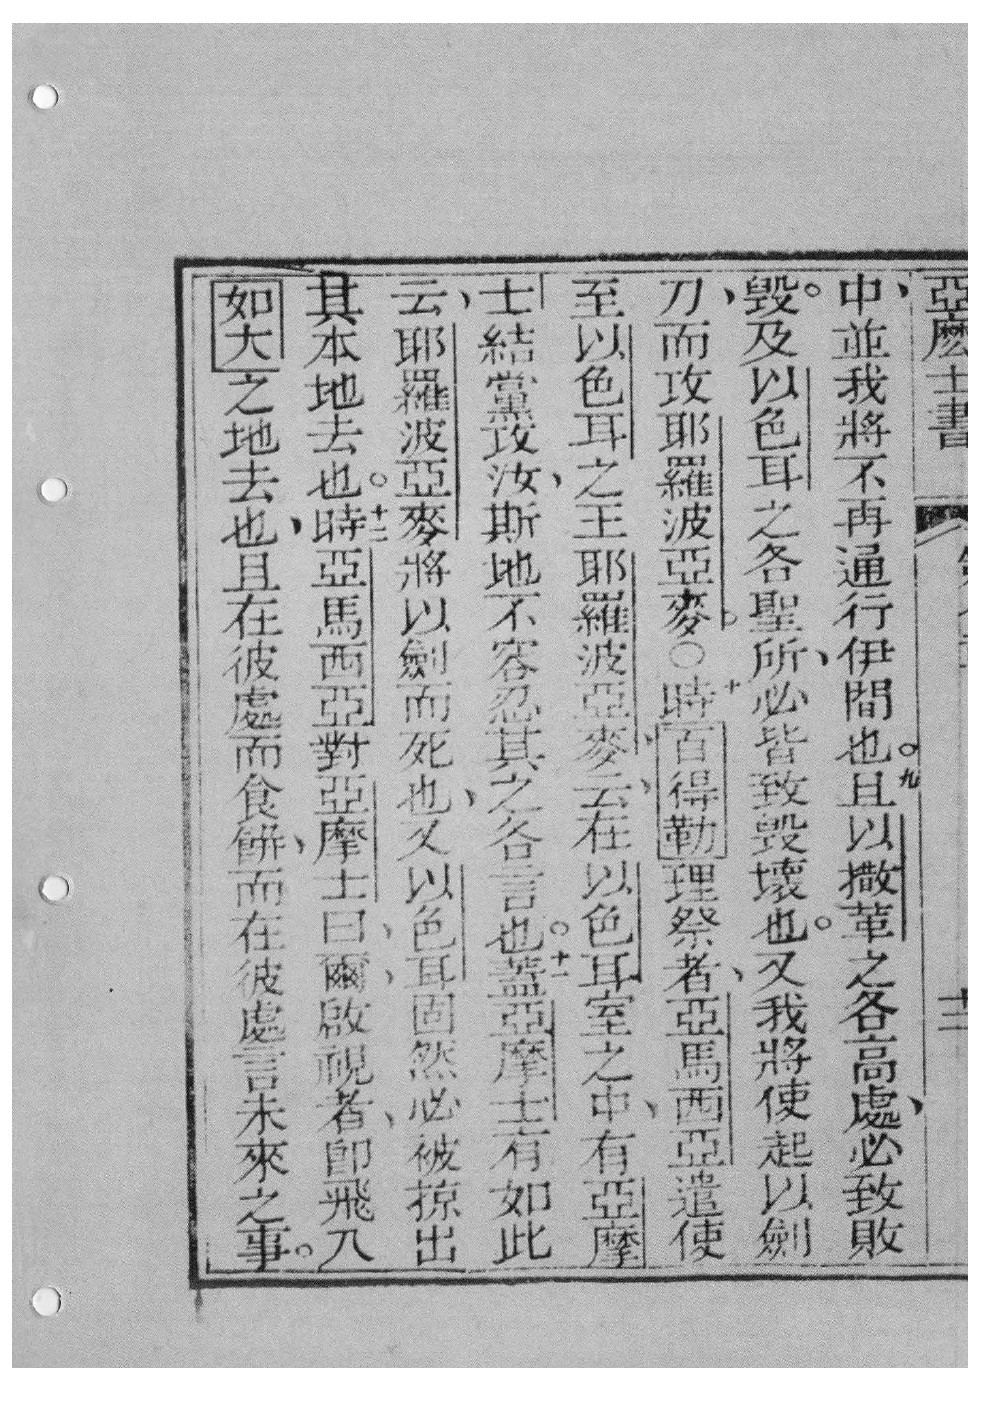 亞麽士書 十二
中、並我將不再通行伊間也。九且以撒革之各高處、必致敗
毀。及以色耳之各聖所、必皆致毀壞也。又我將使起以劍
刀、而攻耶羅波亞麥。○十時百得勒理祭者、亞馬西亞遣使
至以色耳之王耶羅波亞麥、云、在以色耳室之中、有亞摩
士結黨攻汝、斯地不容忍其之各言也。十一蓋亞摩士有如此
云、耶羅波亞麥將以劍而死也、又以色耳固然必被掠出
其本地去也。十二時亞馬西亞對亞摩士曰、爾、啟視者、卽飛入
如大之地去也、且在彼處而食餅、而在彼處言未來之事。